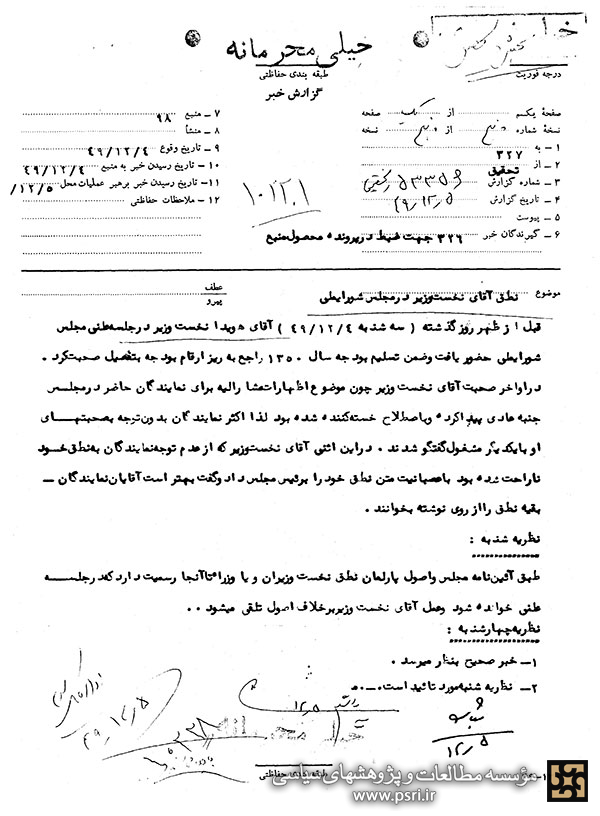 خیلی محرمانه
طبقه بندی حفاظتی
درجه فوریت
گزارش خبر
صفحهٔ یکم از یک صفحه
نسخهٔ شماره پنج از پنج نسخه
۱ - به ۳۲۷
۲ - از تحقیق
۳ - شماره گزارش
۴ - تاریخ گزارش ۴۹٫۱۲٫۵
۵ - پیوست
۶ - گیرندگان خبر ۳۲۶ جهت ضبط در پرونده محصول منبع
۷ - منبع ۹۸
۸ - منشأ
۹ - تاریخ وقوع ۴۹/۱۲/۴
۱۰ - تاریخ رسیدن خبر به منبع ۴۹/۱۲/۴
۱۱ - تاریخ رسیدن خبر برهبر عملیات محل /۱۲/۵
۱۲ - ملاحظات حفاظتی
۱۰۱۲۰۱
موضوع نطق آقای نخست وزیر در مجلس شورایملی
عطف
پیرو
قبل از ظهر روز گذشته ( سه شنبه ۴۹/۱۲/۴ ) آقای هویدا نخست وزیر در جلسه علنی مجلس
شورایملی حضور یافت وضمن تسلیم بودجه سال ۱۳۵۰ راجع به ریز ارقام بودجه بتفصیل صحبت کرد .
در اواخر صحبت آقای نخست وزیر چون موضوع اظهارات مشارالیه برای نمایندگان حاضر در مجلس
جنبه عادی پیدا کرده وباصطلاح خسته کننده شده بود لذا اکثر نمایندگان بدون توجه به صحبتهای
او بایکدیگر مشغول گفتگو شدند . در این اثنی آقای نخست وزیر که از عدم توجه نمایندگان به نطق خود
ناراحت شده بود باعصبانیت متن نطق خود را برئیس مجلس داد وگفت بهتر است آقایان نمایندگان –
بقیه نطق را از روی نوشته بخوانند .
نظریه شنبه :
طبق آئین نامه مجلس واصول پارلمان نطق نخست وزیران و یا وزرا تاآنجا رسمیت دارد که در جلسه
علنی خوانده شود وعمل آقای نخست وزیر برخلاف اصول تلقی میشود . .
نظریه چهارشنبه :
۱- خبر صحیح بنظر میرسد .
۲- نظریه شنبه مورد تائید است . م
۱۲٫۵
۴۹٫۱۲٫۵
۱۲٫۵
خیلی محرمانه
طبقه بندی حفاظتی
مؤسسه مطالعات و پژوهشهای سیاسی
www.psri.ir